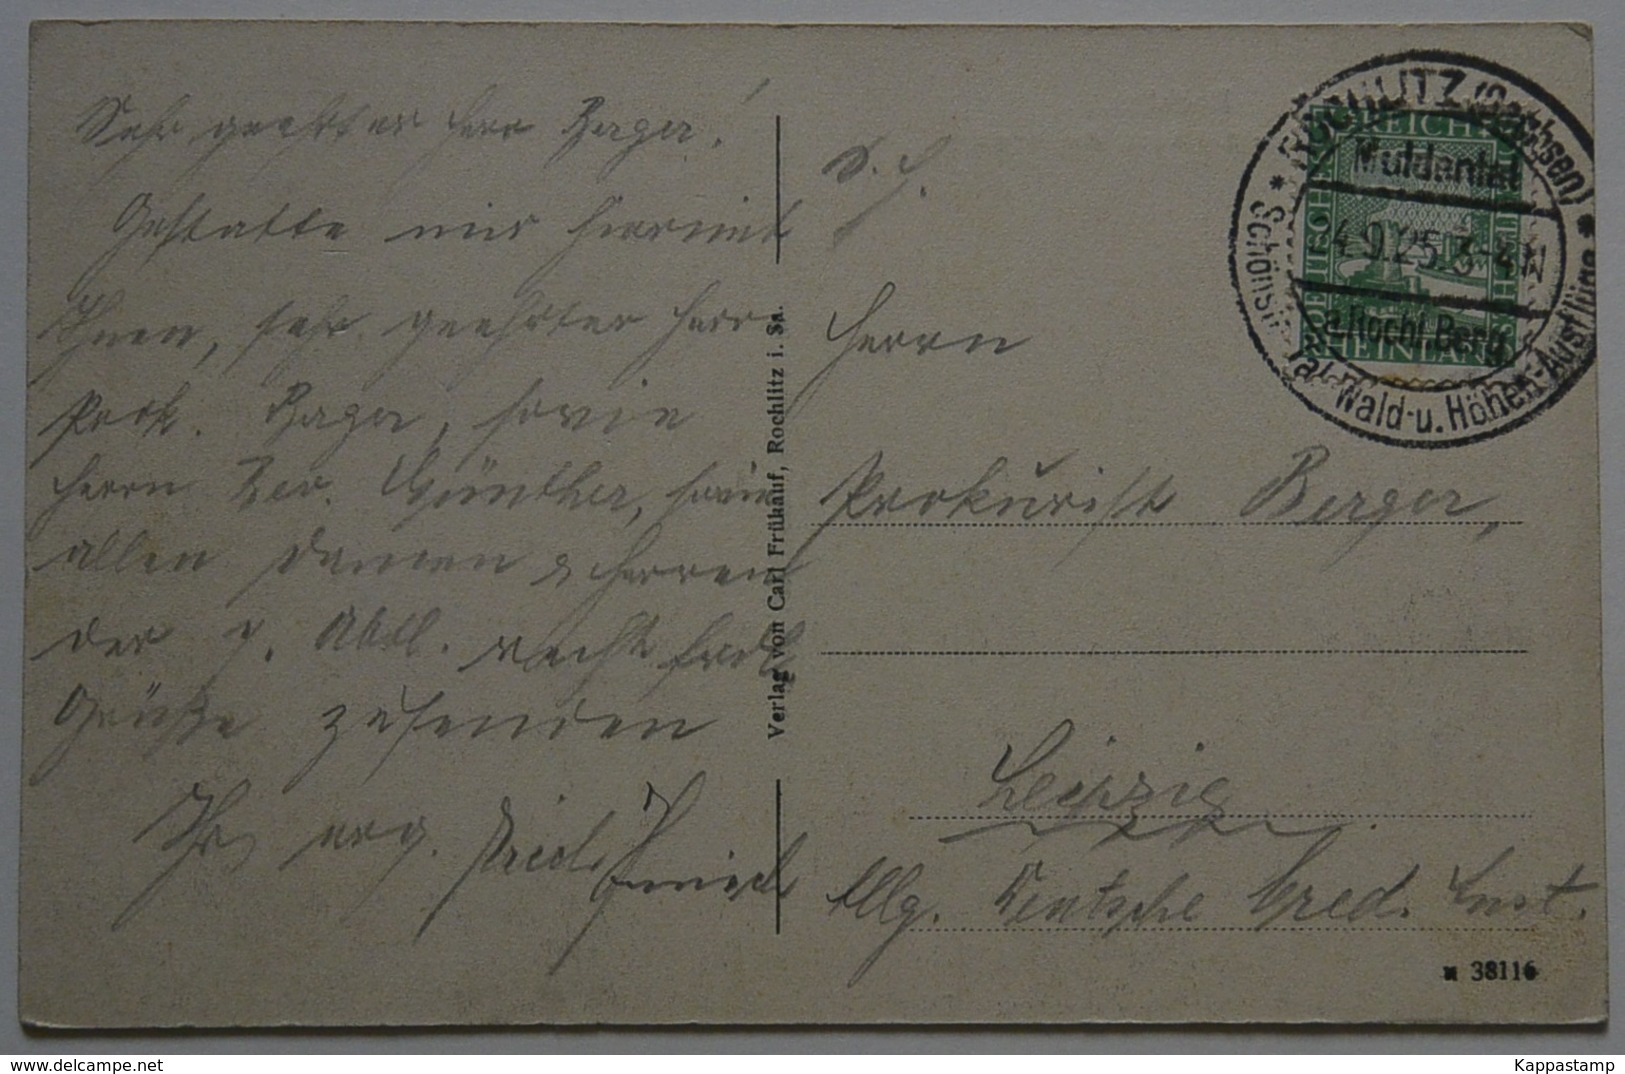 Sehr geehrter Herr Berger!
Gestatte mir hiermit
Ihnen, sehr geehrter Herr
Prok. Berger, sowie
Herrn Rev. Günther, sowie
allen Damen & Herren
der
Grüße zusenden
Ihr erg.
Verlag von Carl Frükauf, Rochlitz i. Sa.
Herrn
Prokurist Berger,
Leipzig
Allg. Deutsche Cred. Inst.
38116
* ROCHLITZ (Sachsen) *
Muldental
4.9.25.3-4N
a.Rochl.Berg
Schönste Tal-Wald-u.Höhen-Ausflüge
DEUTSCHES REICH
RHEINLAND
Kappastamp